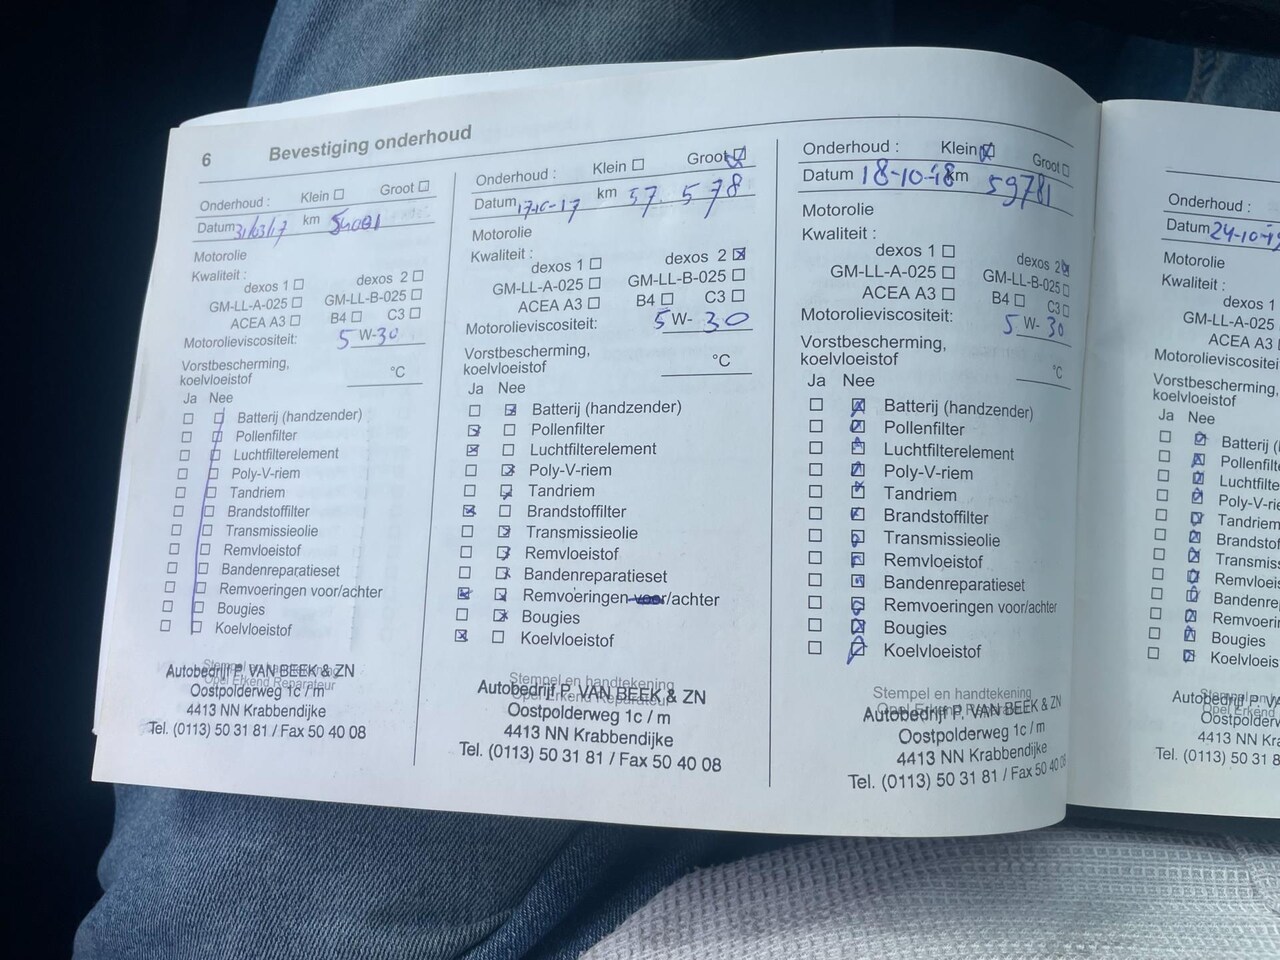 6 Bevestiging onderhoud
Onderhoud : Klein Groot
Datum 31/03/17 km
Motorolie
Kwaliteit :
dexos 1 dexos 2
GM-LL-A-025 GM-LL-B-025
ACEA A3 B4 C3
Motorolieviscositeit: 5 W-30
Vorstbescherming,
koelvloeistof °C
Ja Nee
Batterij (handzender)
Pollenfilter
Luchtfilterelement
Poly-V-riem
Tandriem
Brandstoffilter
Transmissieolie
Remvloeistof
Bandenreparatieset
Remvoeringen voor/achter
Bougies
Koelvloeistof
Stempel en handtekening
Opel Erkend Reparateur
Autobedrijf P. VAN BEEK & ZN
Oostpolderweg 1c / m
4413 NN Krabbendijke
Tel. (0113) 50 31 81 / Fax 50 40 08
Onderhoud : Klein Groot
Datum 17-10-17 km 57.578
Motorolie
Kwaliteit :
dexos 1 dexos 2
GM-LL-A-025 GM-LL-B-025
ACEA A3 B4 C3
Motorolieviscositeit: 5 W- 30
Vorstbescherming,
koelvloeistof °C
Ja Nee
Batterij (handzender)
Pollenfilter
Luchtfilterelement
Poly-V-riem
Tandriem
Brandstoffilter
Transmissieolie
Remvloeistof
Bandenreparatieset
Remvoeringen voor/achter
Bougies
Koelvloeistof
Stempel en handtekening
Opel Erkend Reparateur
Autobedrijf P. VAN BEEK & ZN
Oostpolderweg 1c / m
4413 NN Krabbendijke
Tel. (0113) 50 31 81 / Fax 50 40 08
Onderhoud : Klein Groot
Datum 18-10-18 km 59781
Motorolie
Kwaliteit :
dexos 1 dexos 2
GM-LL-A-025 GM-LL-B-025
ACEA A3 B4 C3
Motorolieviscositeit: 5 W- 30
Vorstbescherming,
koelvloeistof °C
Ja Nee
Batterij (handzender)
Pollenfilter
Luchtfilterelement
Poly-V-riem
Tandriem
Brandstoffilter
Transmissieolie
Remvloeistof
Bandenreparatieset
Remvoeringen voor/achter
Bougies
Koelvloeistof
Stempel en handtekening
Opel Erkend Reparateur
Autobedrijf P. VAN BEEK & ZN
Oostpolderweg 1c / m
4413 NN Krabbendijke
Tel. (0113) 50 31 81 / Fax 50 40 08
Onderhoud :
Datum 24-10-19
Motorolie
Kwaliteit :
dexos 1
GM-LL-A-025
ACEA A3
Motorolieviscositei
Vorstbescherming,
koelvloeistof
Ja Nee
Batterij (
Pollenfilte
Luchtfilte
Poly-V-r
Tandriem
Brandsto
Transmis
Remvloei
Bandenre
Remvoerin
Bougies
Koelvloeis
Stempel en
Opel Erkend
Autobedrijf P. VA
Oostpolderw
4413 NN Kra
Tel. (0113) 50 31 8